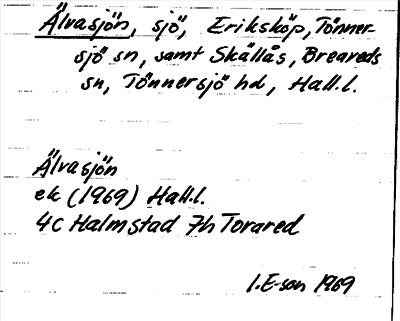 Älvasjön, sjö, Eriksköp, Tönner-
sjö sn, samt Skällås, Breareds
sn, Tönnersjö hd, Hall.l.
Älvasjön
ek (1969) Hall.l.
4C Halmstad 7h Torared
I.E-son 1969